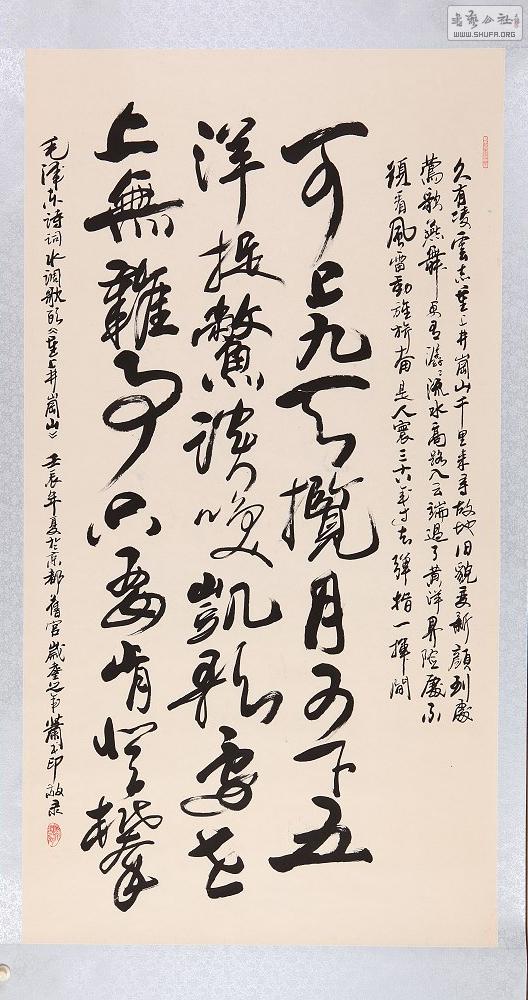 书艺公社
WWW.SHUFA.ORG
久有凌雲志重上井崗山千里来寻故地旧貌变新顔到處
莺歌燕舞更有潺潺流水高路入云端過了黄洋界险處不
須看風雷動旌旗奋是人寰三十八年过去弹指一揮間
可上九天攬月可下五
洋捉鱉談笑凱歌還世
上無難事只要肯登攀
毛泽东诗词水调歌头《重上井崗山》壬辰年夏於京都舊宫 萧玉印敬录